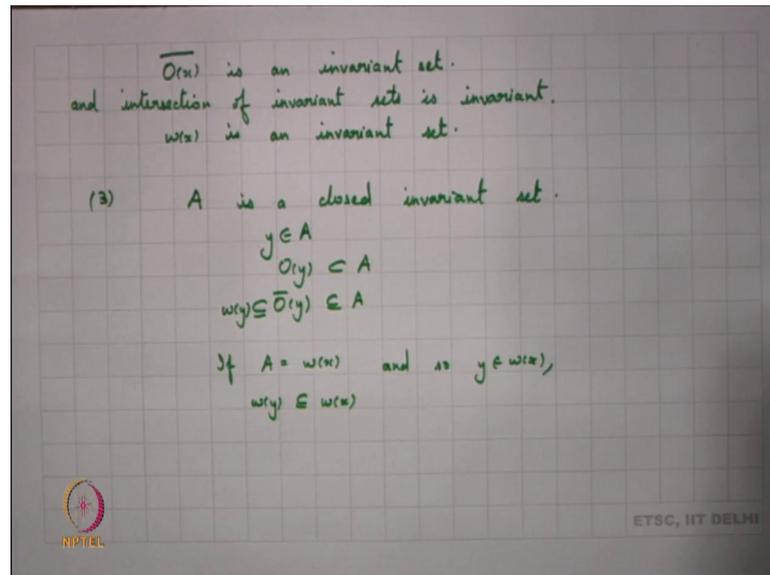 $\overline{O(x)}$ is an invariant set.
and intersection of invariant sets is invariant.
ω(x) is an invariant set.
(3) A is a closed invariant set.
y ∈ A
O(y) ⊂ A
ω(y) ⊆ $\overline{O}$(y) ⊆ A
If A = ω(x) and so y ∈ ω(x),
ω(y) ⊆ ω(x)
NPTEL
ETSC, IIT DELHI